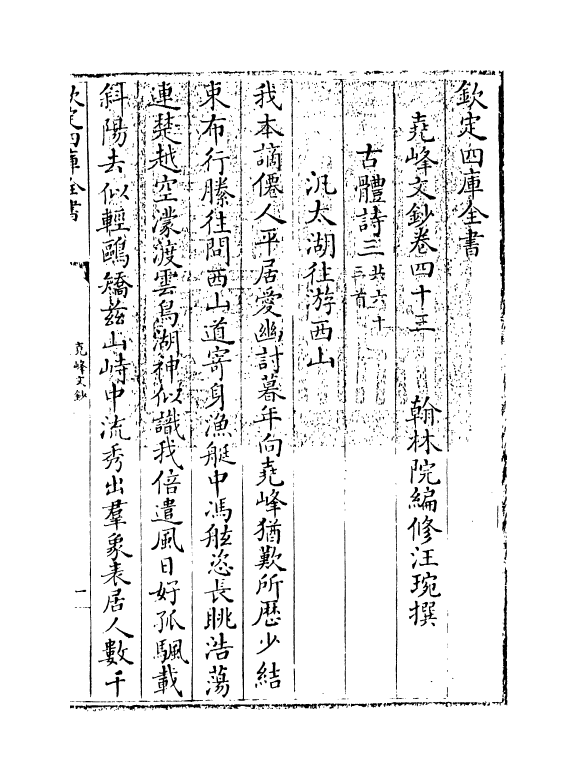 欽定四庫全書
堯峰文鈔卷四十三　　翰林院編修汪琬撰
古體詩三共六十三首
汎太湖往游西山
我本謫僊人平居愛幽討暮年向堯峰猶歎所歴少結
束布行縢往問西山道寄身漁艇中馮舷恣長眺浩蕩
連楚越空濛渡雲鳥湖神似識我倍遣風日好孤颿載
斜陽去似輕鷗矯兹山峙中流秀出羣象表居人數千
欽定四庫全書
堯峰文鈔
一